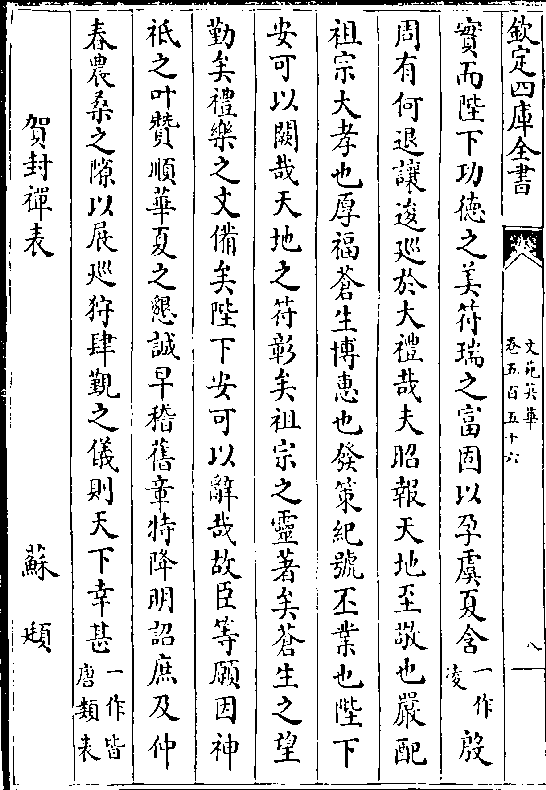 欽定四庫全書
文苑英華
卷五百五十六
八
實而陛下功德之美符瑞之富固以孕虞夏含一作凌殷
周有何退讓逡廵於大禮哉夫昭報天地至敬也嚴配
祖宗大孝也厚福蒼生博惠也發策紀號丕業也陛下
安可以闕哉天地之符彰矣祖宗之靈著矣蒼生之望
勤矣禮樂之文備矣陛下安可以辭哉故臣等願因神
祇之叶贊順華夏之懇誠早稽舊章特降明詔庶及仲
春農桑之隙以展廵狩肆覲之儀則天下幸甚一作皆唐類表
賀封禪表 蘇頲